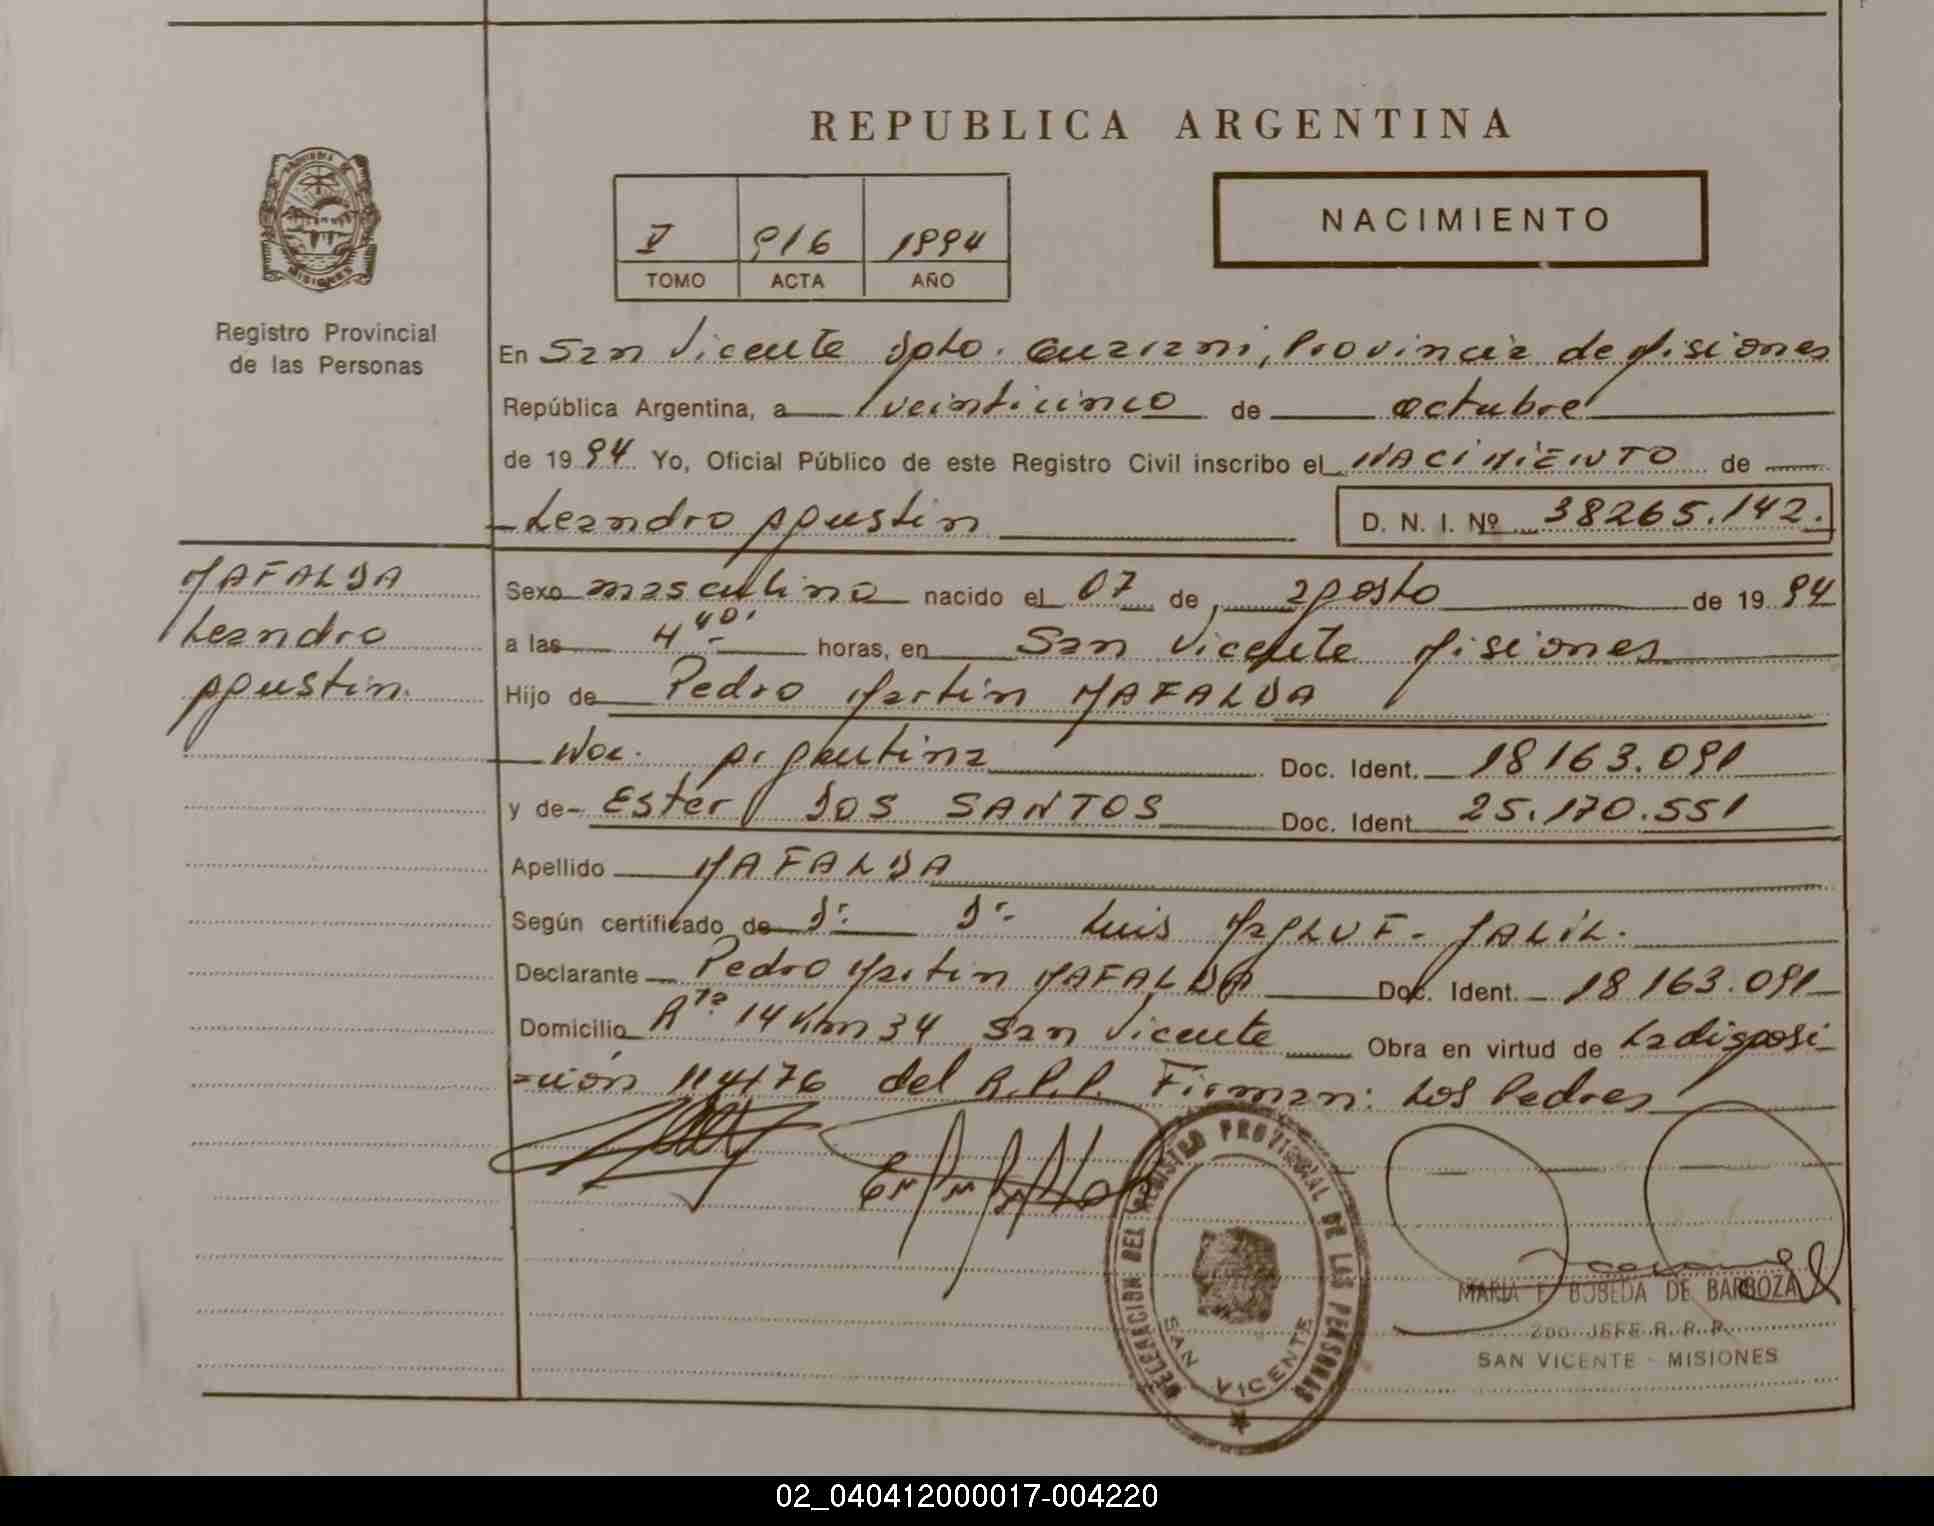 REPUBLICA ARGENTINA
NACIMIENTO
V 916 1994
TOMO ACTA AÑO
PROVINCIA DE
MISIONES
Registro Provincial
de las Personas
En San Vicente Dpto. Guarani, Provincia de Misiones
República Argentina, a veinticinco de octubre
de 1994 Yo, Oficial Público de este Registro Civil inscribo el NACIMIENTO de
Leandro Agustin D. N. I. Nº 38265.142.
MAFALDA
Leandro
Agustin.
Sexo masculino nacido el 07 de agosto de 1994
a las 4 40' horas, en San Vicente Misiones
Hijo de Pedro Martin MAFALDA
Nac. Argentina Doc. Ident. 18163.091
y de Ester DOS SANTOS Doc. Ident. 25.170.551
Apellido MAFALDA
Según certificado de Dr. Dr. Luis MALIL.
Declarante Pedro Martin MAFALDA Doc. Ident. 18163.091
Domicilio Rta. 14 Km 34 San Vicente Obra en virtud de La disposi
=ción 114/76 del R.P.P. Firman: Los Padres
DELEGACION DEL REGISTRO PROVINCIAL DE LAS PERSONAS
SAN VICENTE
MARIA F. BOBEDA DE BARBOZA
2DO JEFE R. P. P.
SAN VICENTE - MISIONES
02_040412000017-004220